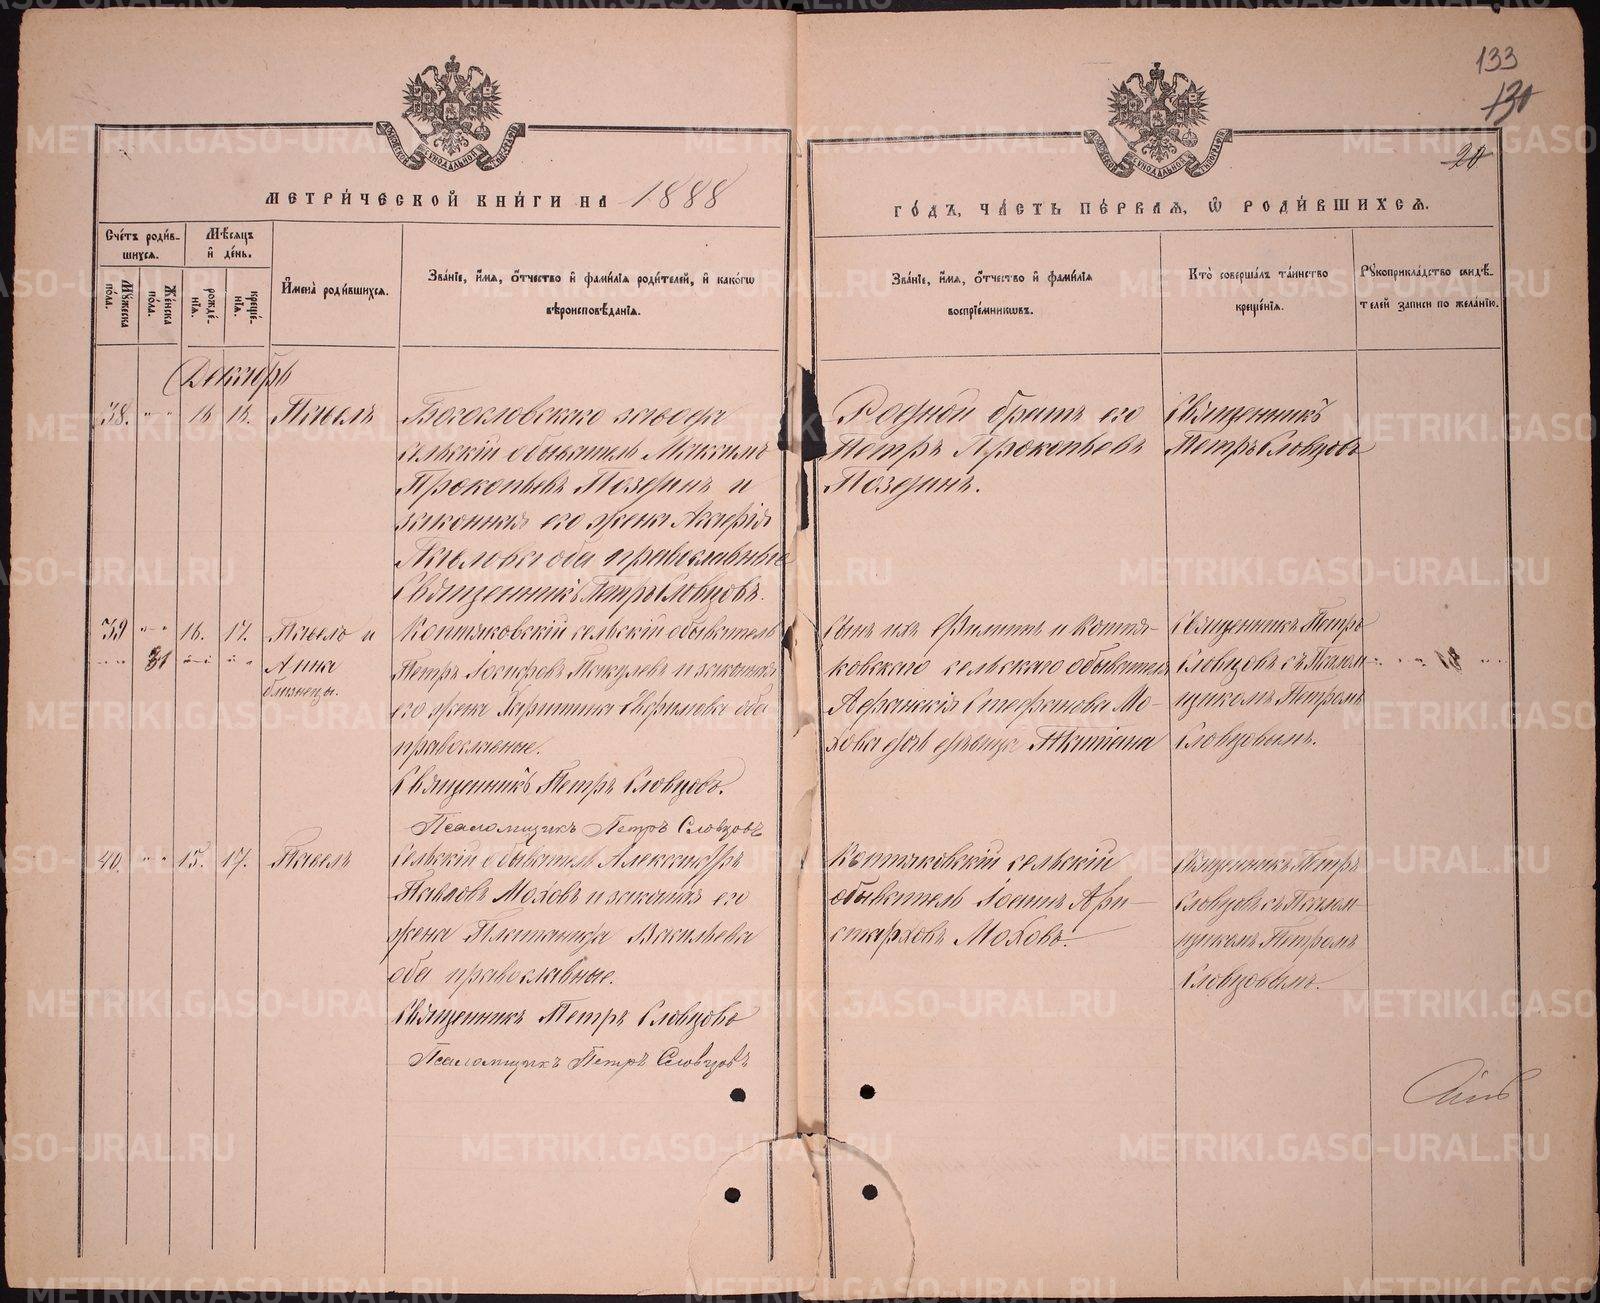 133
130
20
МЕТРИ́ЧЕСКОЙ КНИ́ГИ НА 1888
ГО́ДЪ, ЧА́СТЬ ПЕ́РВАЯ, Ѡ РОДИ́ВШИХСЯ.
Сче́тъ роди́в-
шихся.
Мѣ́сяцъ
и́ де́нь.
Му́жеска по́ла.
Же́нска по́ла.
рожде́-
нїя.
креще́-
нїя.
И҆мена̀ роди́вшихся.
Зва́нїе, и҆́мя, ѻ҆́тчество и҆ фами́лїя роди́телей, и҆ како́гѡ
вѣроисповѣ́данїя.
Зва́нїе, и҆́мя, ѻ҆́тчество и҆ фами́лїя
воспрїе́мникѡвъ.
Кто̀ соверша́лъ та́инство
креще́нїя.
Рукоприкла́дство свидѣ́-
телей записи по жела́нїю.
Декабрь
38. " " 16 16. Павелъ
Богословскаго завода
сельскій обыватель Максимъ
Прокопьевъ Поздинъ и
законная его жена
Павлова оба православные
Священникъ Петръ Словцовъ.
Родной братъ его
Петръ Прокопьевъ
Поздинъ.
Священникъ
Петръ Словцовъ
39 " " 16. 17. Павелъ и
31 Анна
близнецы.
Коптяковскій сельскій обыватель
Петръ Іосифовъ Пакулевъ и законная
его жена Харитина Ефимова оба
православные.
Священникъ Петръ Словцовъ.
Псаломщикъ Петръ Словцовъ
Сынъ ихъ Филиппъ и Коптя-
ковскаго сельскаго обывателя
Афанасія Стефанова Мо-
хова дочь дѣвица Татіана
Священникъ Петръ
Словцовъ съ Псалом-
щикомъ Петромъ
Словцовымъ.
40. " " 15. 17. Павелъ
Сельскій обыватель Александръ
Павловъ Моховъ и законная его
жена Платанида Васильева
оба православные.
Священникъ Петръ Словцовъ
Псаломщикъ Петръ Словцовъ
Коптяковскій сельскій
обыватель Іоаннъ Ари-
старховъ Моховъ.
Священникъ Петръ
Словцовъ съ Псалом-
щикомъ Петромъ
Словцовымъ.